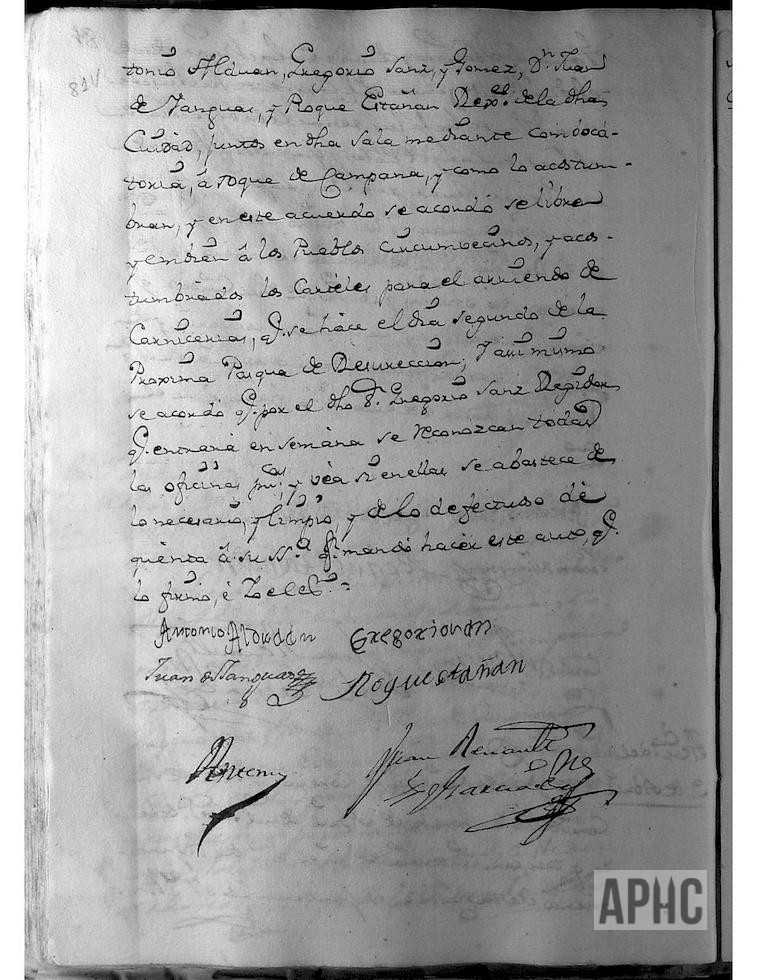 81v
tonio Alduan, Gregorio Sanz, y Gomez, Dn Juan
de Yanguas, y Roque Estañan Rexes. de la dha
Ciudad, juntos en dha sala mediante comboca-
toria, â toque de Campana, y como lo acostum-
bran, y en este acuerdo se acordó se libren
y embien â los Pueblos circumvecinos, y acos-
tumbrados los Carteles para el arriendo de
Carnicerias, q. se hàce el dia segundo de la
Proxima Pasqua de Resureccion; Y asi mismo
se acordó q. por el dho Dn. Gregorio Sanz Regidor
q. entrará en semana se reconozcan todas
las oficinas y vea si en ellas se abastece de
lo necesario, y limpio, y de lo defectuoso dè
quenta â su Sª. q. mandó hacer este auto, q.
lo firmó, è
Antonio Alduan Gregorio
Juan de Yanguas Roque estañan
Ante mi Juan
Garcia
APHC